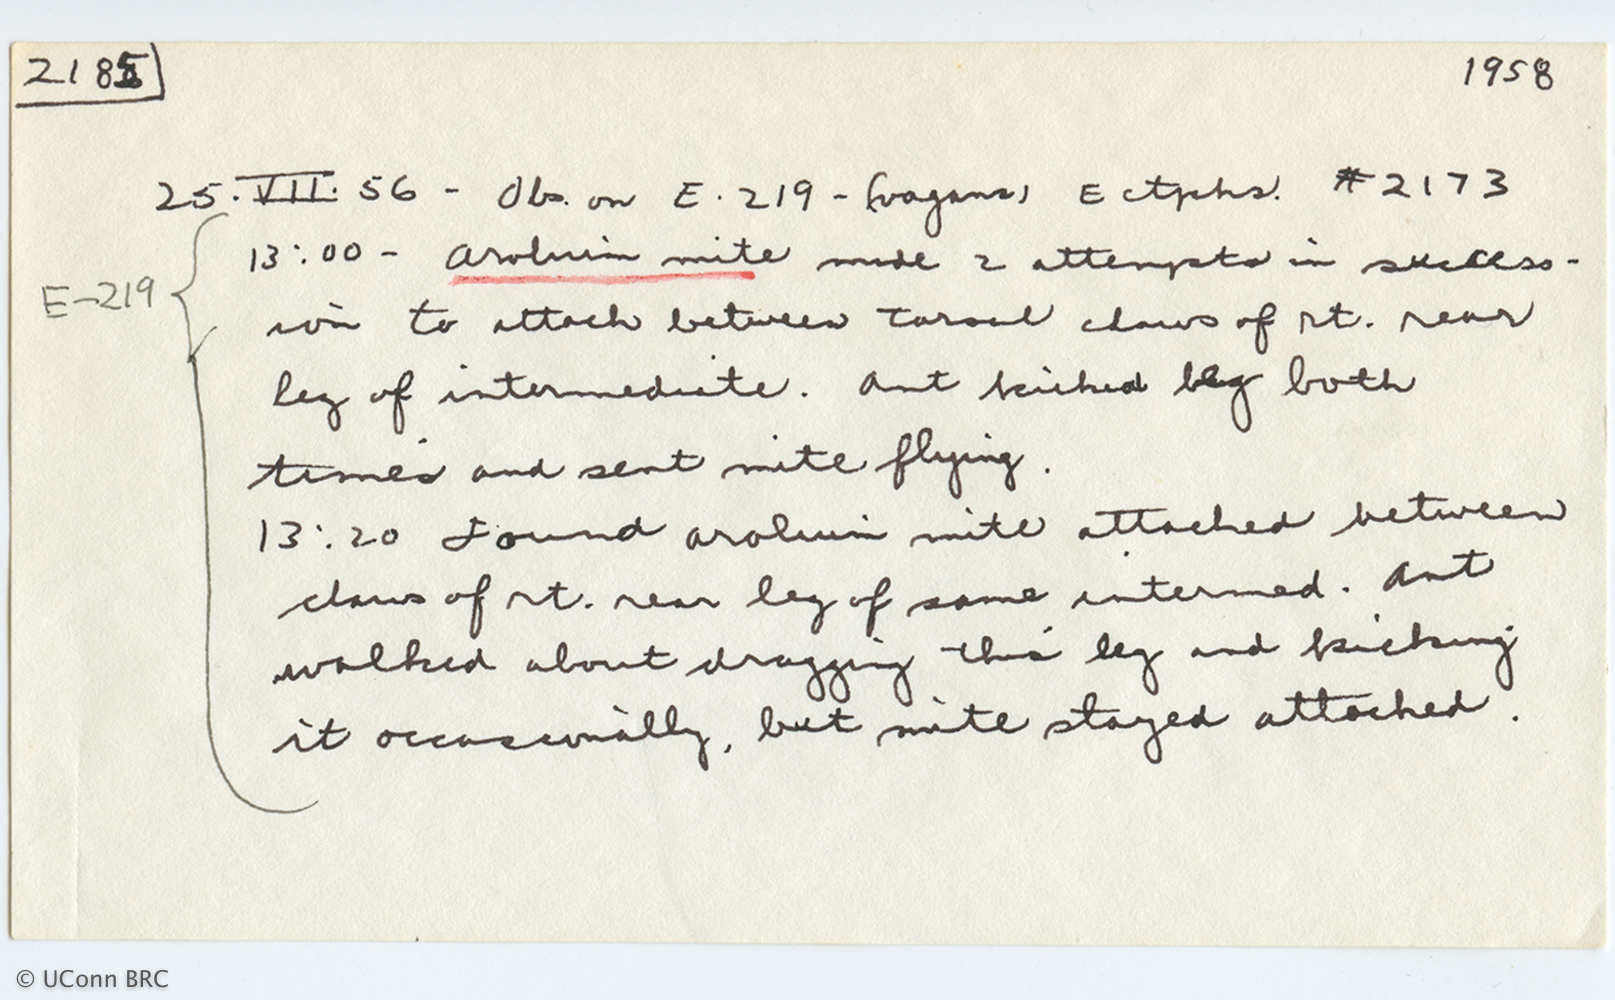 2185
1958
25.VII.56 - Obs. on E-219 - (vagans) Ectphs. #2173
E-219
13:00 - Arolium mite made 2 attempts in success-
ion to attach between tarsal claws of rt. rear
leg of intermediate. Ant kicked leg both
times and sent mite flying.
13:20 Found arolium mite attached between
claws of rt. rear leg of same intermed. Ant
walked about dragging this leg and kicking
it occassionally, but mite stayed attached.
© UConn BRC